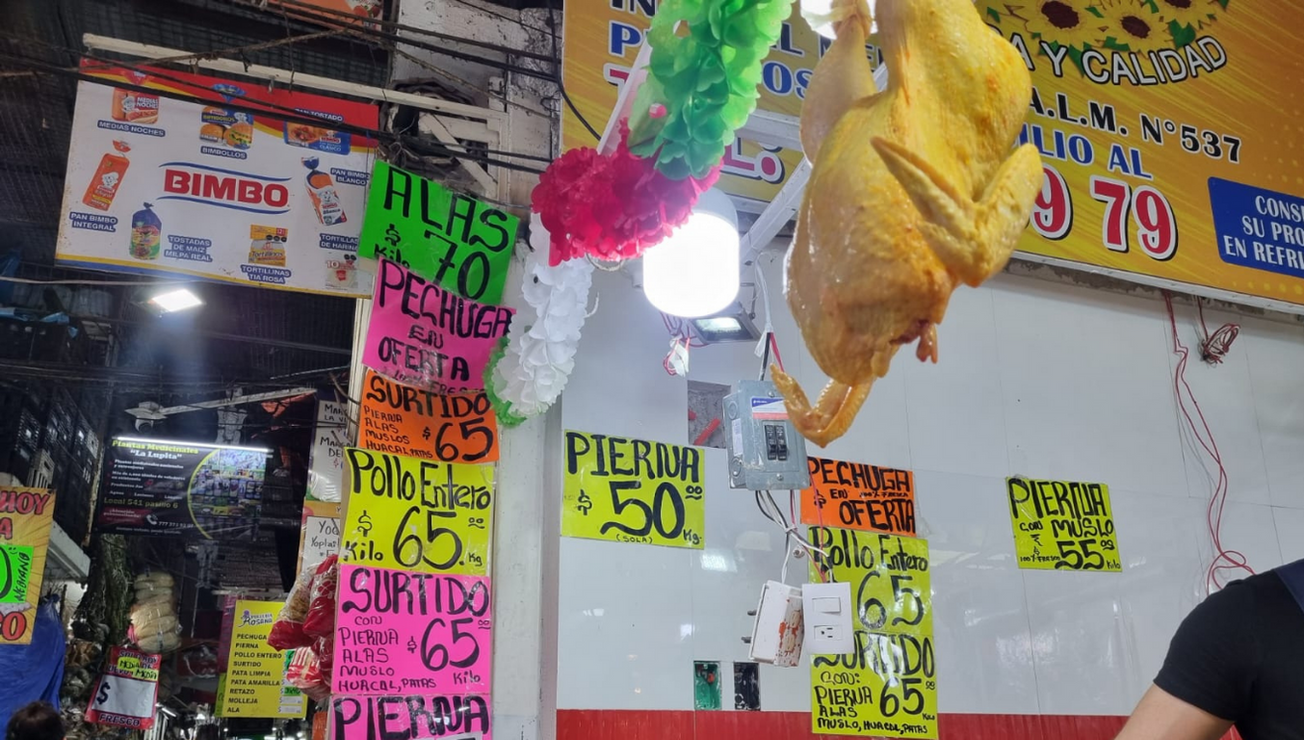 MEDIAS NOCHES
BIMBOLLOS
BIMBO
PAN BIMBO
INTEGRAL
TOSTADAS
DE MAIZ
MILPA REAL
TORTILLINAS
TIA ROSA
ALAS
$ 70
Kilo
PECHUGA
EN
OFERTA
SURTIDO
PIERNA
ALAS
MUSLOS
HUACAL, PATAS
$ 65
Pollo Entero
$ 65.00
Kilo Kg
SURTIDO
CON
PIERNA
ALAS
MUSLO
HUACAL, PATAS
$ 65
Kilo
PIERNA
PIERNA
$ 50.00 Kg.
(SOLA)
PECHUGA
EN
OFERTA
Pollo Entero
65
SURTIDO
CON:
PIERNA
ALAS
65
MUSLO, HUACAL, PATAS
PIERNA
CON MUSLO
$ 55.00
100% FRESCO Kilo
Y CALIDAD
A.L.M. N°537
AL
9 79
CONS
SU PRO
EN REFRI
Plantas Medicinales
"La Lupita"
HOY
Rosana
PECHUGA
PIERNA
POLLO ENTERO
SURTIDO
PATA LIMPIA
PATA AMARILLA
RETAZO
MOLLEJA
ALA
$
FRESCO